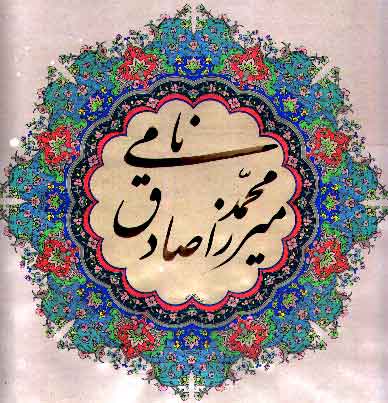 میرزا محمّد صادق نامی